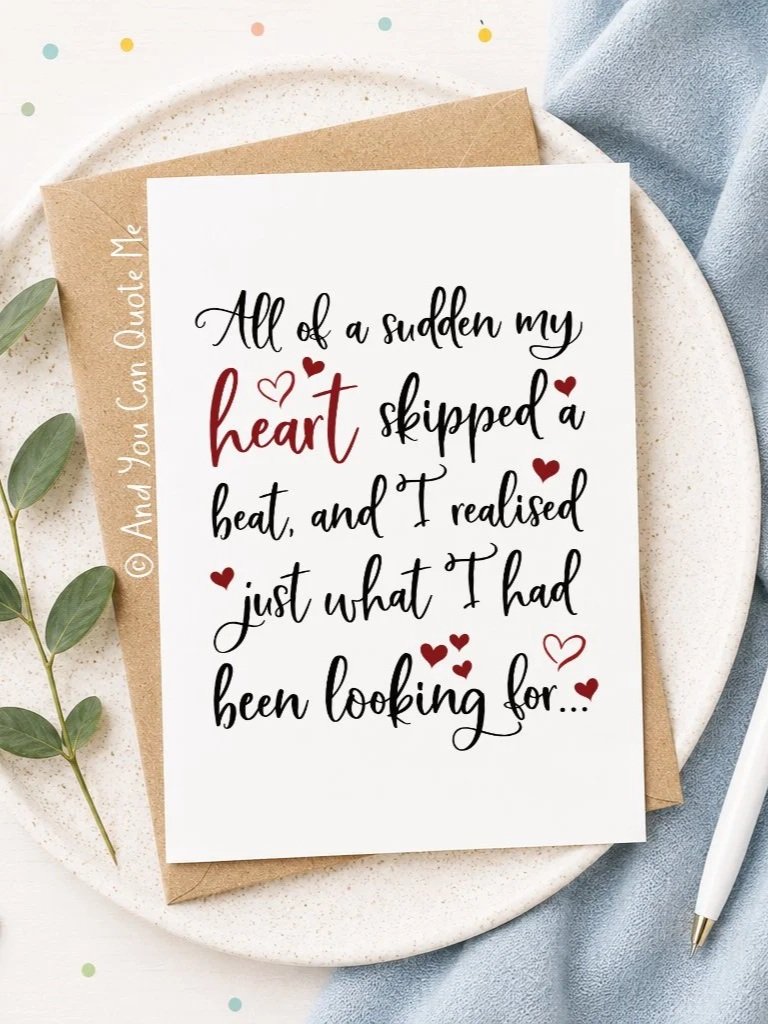 All of a sudden my
heart skipped a
beat, and I realised
just what I had
been looking for...
© And You Can Quote Me